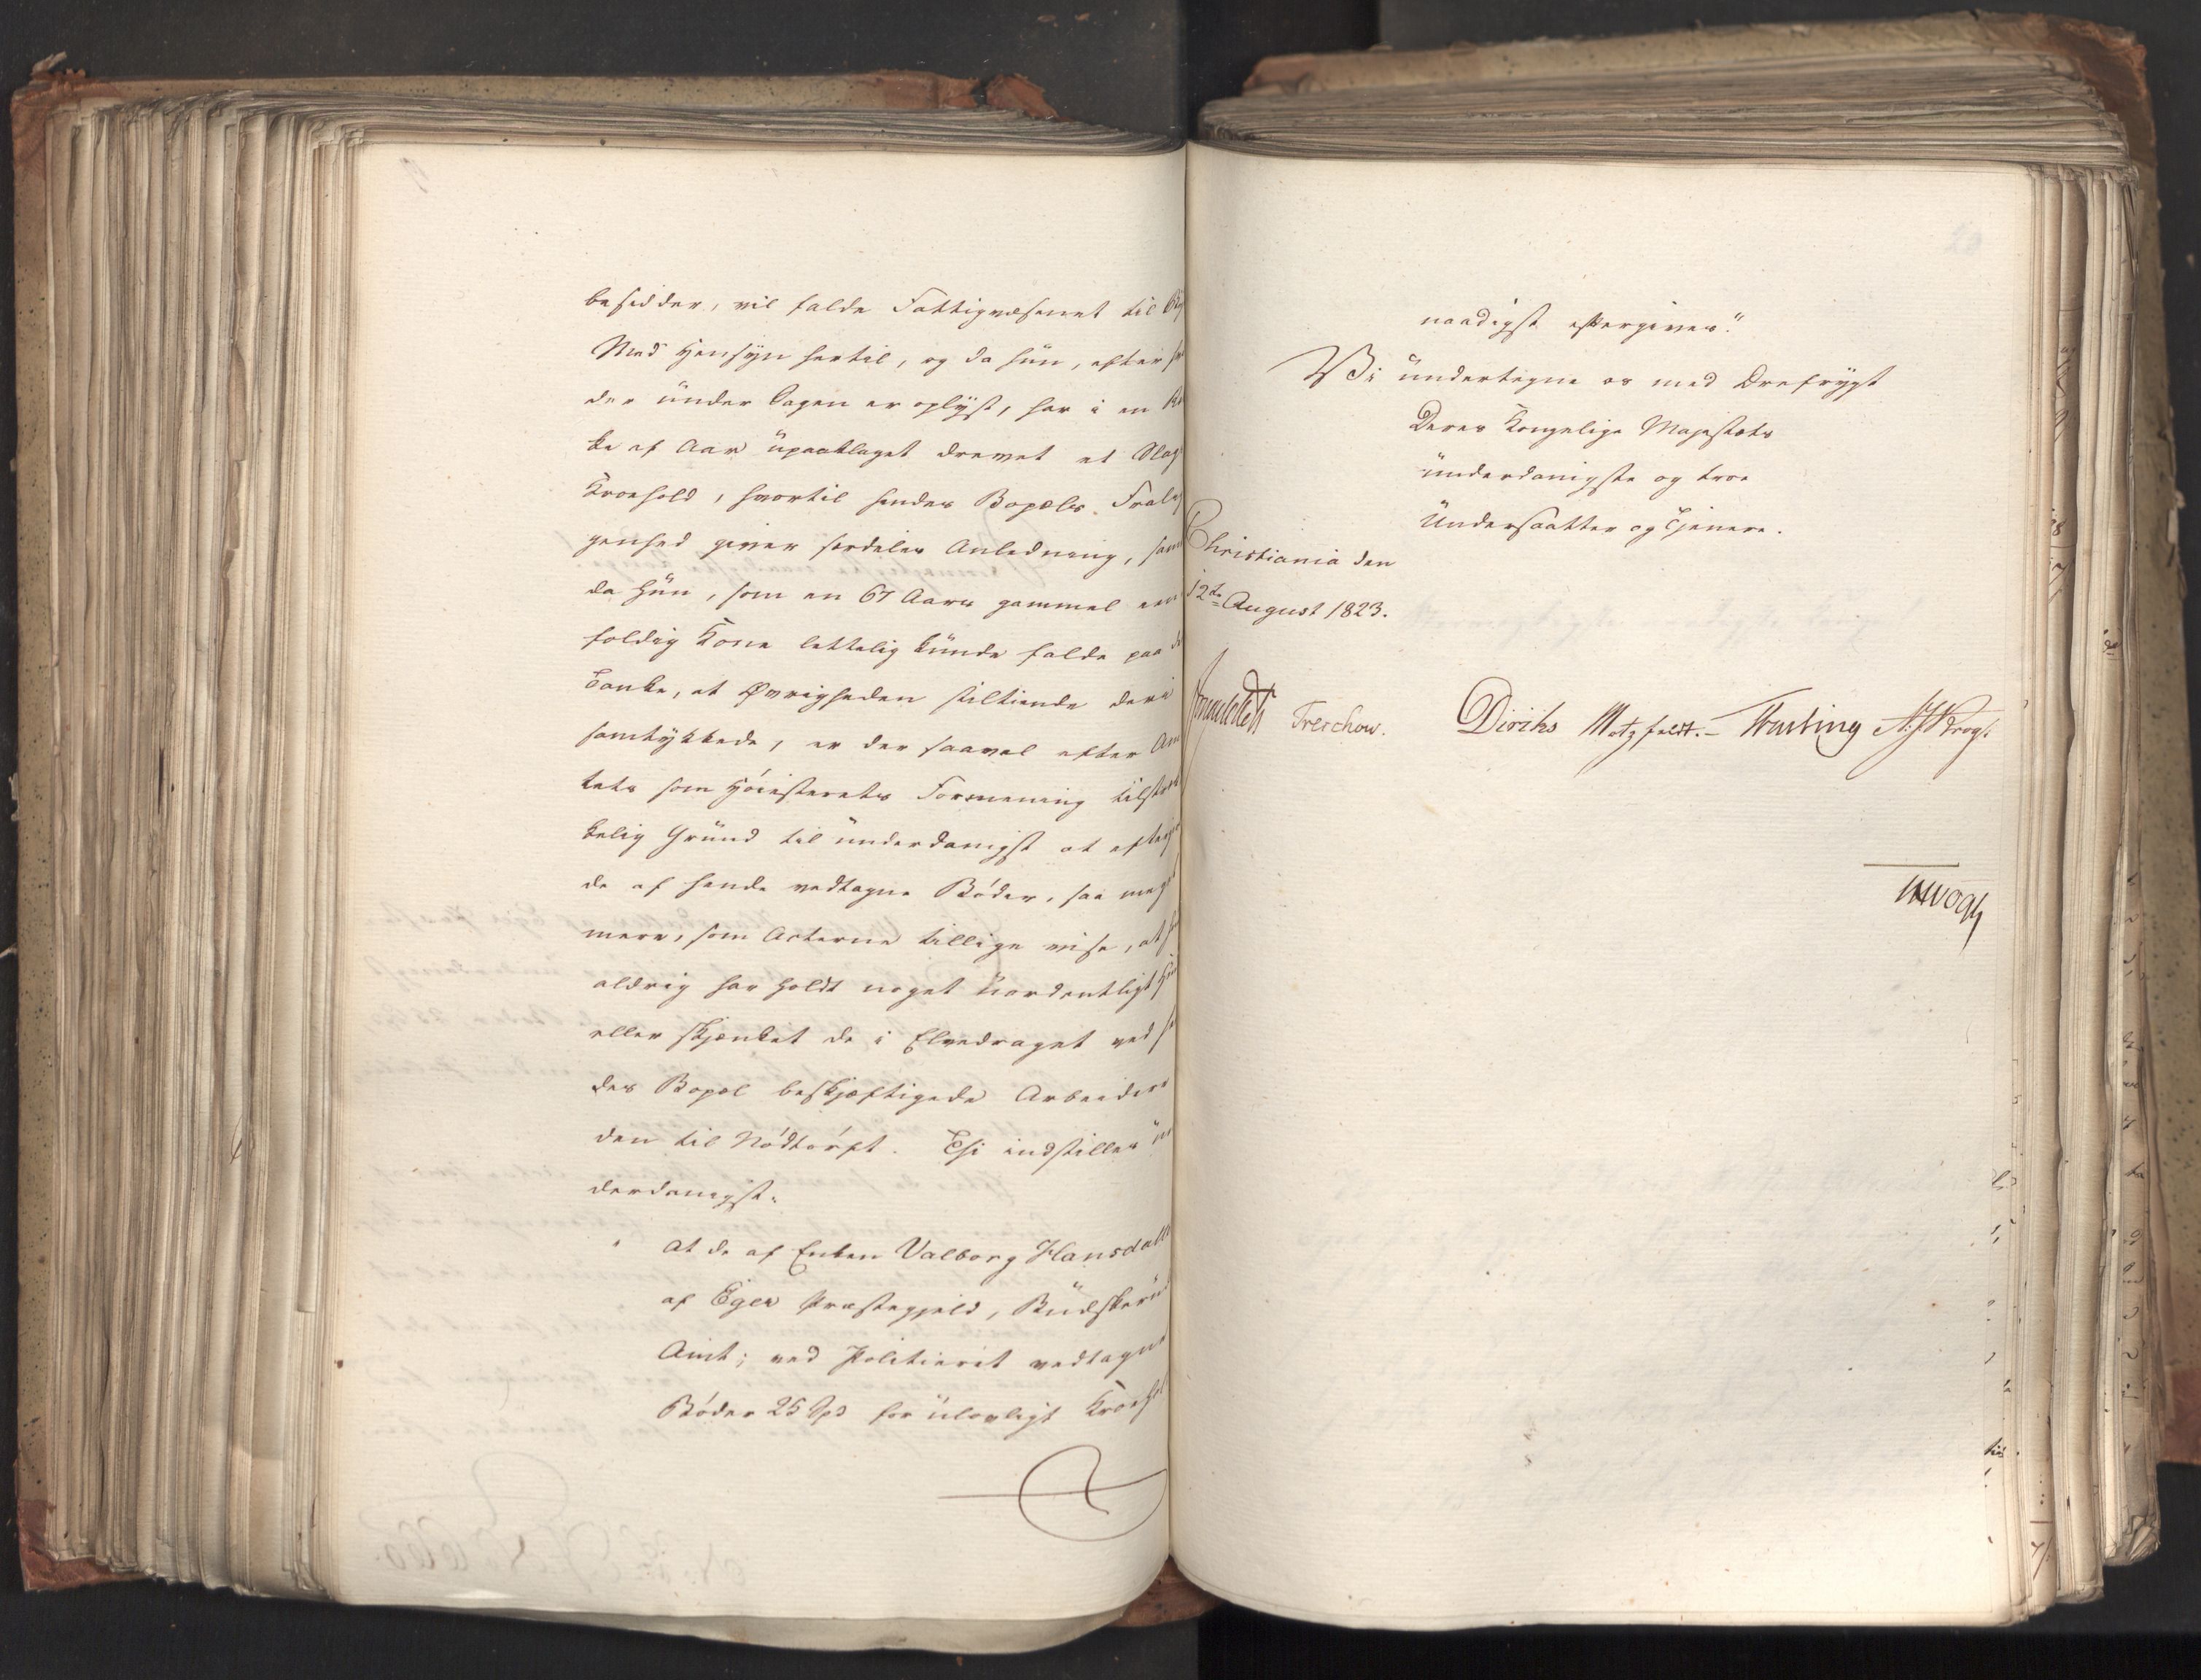 besidder, vil falde Fattigvæsenet til
Med Hensyn hertil, og da hun, efter
der under Sagen er oplyst, har i en Ræk
ke af Aar upaatalaget drevet et Slags
Kroehold, hvortil hendes Bopæls Belig
genhed giver særdeles Anledning, samt
da hun, som en 67 Aars gammel een
foldig Kone lettelig kunde falde paa
Tanke, at Øvrigheden stiltiende deri
samtykkede, er der saavel efter Am
tets som Høiesterets Formening tilstræk
kelig Grund til underdanigst at eftergi
de af hende vedtagne Bøder, saa meget
mere, som Acterne tillige vise, at
aldrig har holdt noget uordentligt
eller skjænket de i Elvedraget ved
des Bopæl beskjæftigede Arbeidere
den til Nødtørft. Thi indstilles un
derdanigst:
" At de af Enken Valborg Hansdatter
af Eger Præstegjeld, Budskeruds
Amt, ved Politieret vedtagne
Bøder 25 Spd for ulovligt Kroehold
naadigst eftergives."
Vi undertegne os med Ærefrygt
Deres Kongelige Majestæts
underdanigste og troe
Undersaatter og Tjenere.
Christiania den
12te August 1823.
Treschow. Diriks Motzfeldt.- Fasting A:J Krogh